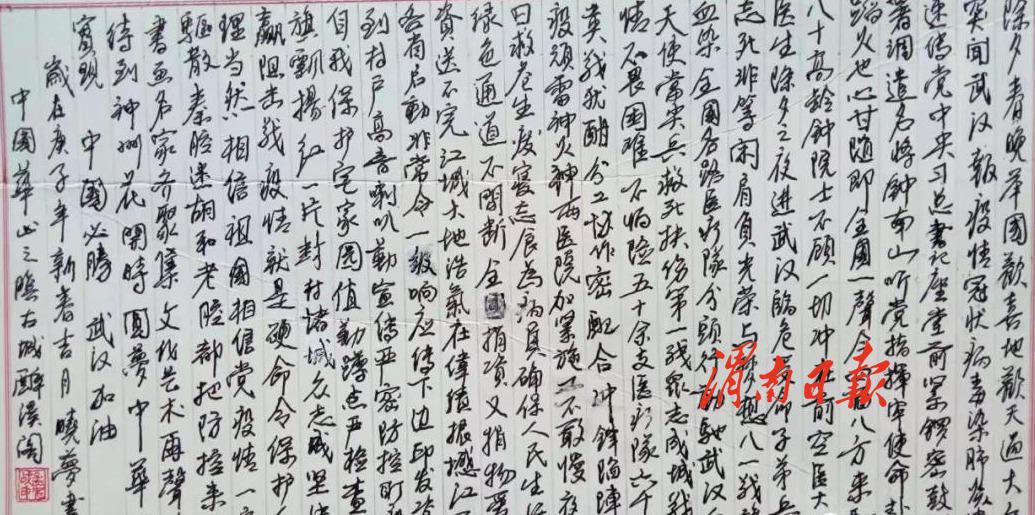 除夕春晚华国欢喜地欢天过大年
突闻武汉报疫情冠状病毒染肺炎
速传党中央习总书记座堂前紧锣密鼓
署调遣名将钟南山听党指挥军使命
蹈火也心甘随即全国一声令
八方来
八十高龄钟院士不顾一切冲在前空医大
医生除夕之夜进武汉临危
子弟兵
志死非等闲肩负光荣与
八一战
血染全国各路医疗队分头行
驰武汉
天使当尖兵救死扶伤第一线众志成城战
情不畏困难不怕险五十余支医疗队六千
英战犹酣分工协作密配合冲锋陷阵
疫频雷神火神两医院加紧施工不敢慢夜
日救危生废寝忘食为病员确保人民生
绿色通道不间断全国捐资又捐物
资送不完江城大地浩气在伟绩振撼江
各省启动非常令一级响应传下边即发
到村户高音喇叭勤宣传严密防控
自我保护宅家园值勤蹲点严检查
旗飘扬红一片封村诸城众志成坚
赢阻击战疫情就是硬命令保护
理当然相信祖国相信党疫情一
驱散秦腔迷胡和老腔都把防控来
书画名家齐聚集文化艺术再声
待到神州花开时圆梦中华
实现 中国必胜 武汉加油
岁在庚子年新春吉月晓梦书
中国华山之阴古城醉溪阁
渭南日报